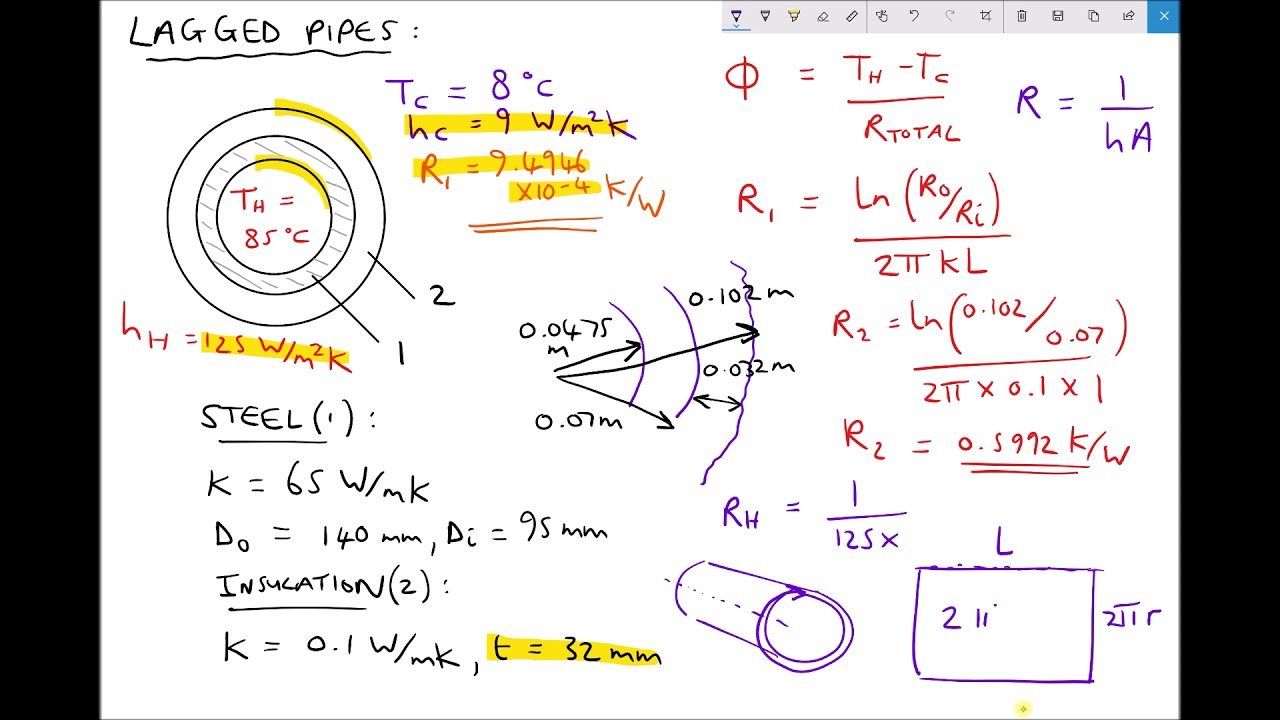 LAGGED PIPES:
T_C = 8°C
h_C = 9 W/m²K
R₁ = 9.4946
×10⁻⁴ K/W
T_H =
85°C
2
h_H = 125 W/m²K
1
STEEL(1):
K = 65 W/mK
D₀ = 140 mm, Di = 95 mm
INSULATION(2):
K = 0.1 W/mK, t = 32 mm
0.0475
m
0.102 m
0.032 m
0.07m
Φ = T_H - T_C / R_TOTAL
R = 1 / hA
R₁ = ln(R₀/Ri) / 2π kL
R₂ = ln(0.102/0.07) / 2π × 0.1 × 1
R₂ = 0.5992 K/W
R_H = 1 / 125×
L
2π r